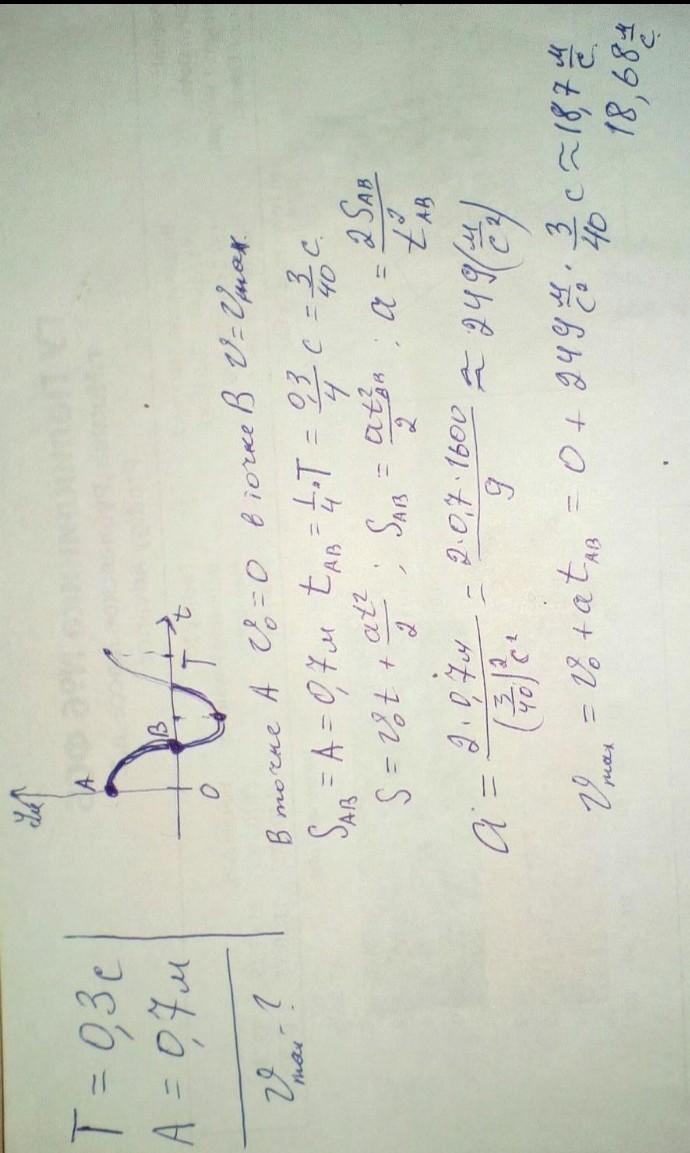 T = 0,3c
A = 0,7м
v_max - ?
A
B
0
T
t
В точке A v₀ = 0 в точке B v = v_max.
S_AB = A = 0,7м t_AB = 1/4 · T = 0,3/4 c = 3/40 c.
S = v₀t + at²/2 ; S_AB = at²_AB/2 ; a = 2S_AB/t²_AB
a = 2·0,7м/(3/40)²c² = 2·0,7·1600/9 ≈ 249(м/c²)
v_max = v₀ + at_AB = 0 + 249 м/c² · 3/40 c ≈ 18,7 м/c.
18,68 м/c.